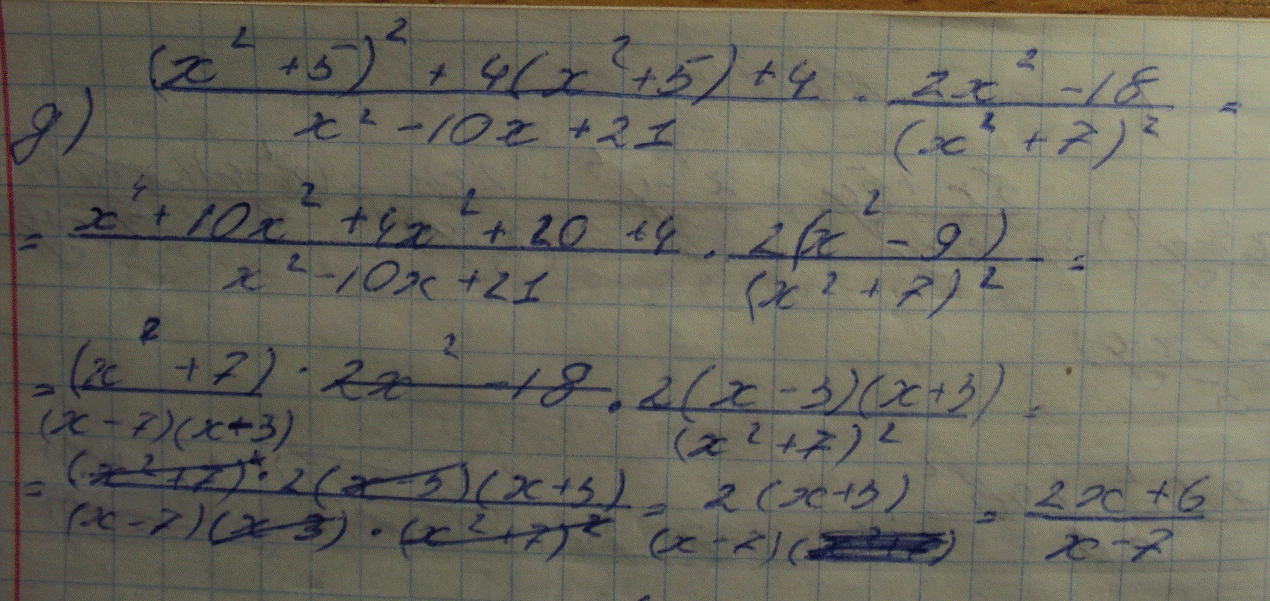 д) ((x² + 5)² + 4(x² + 5) + 4)/(x² - 10x + 21) · (2x² - 18)/((x² + 7)²) =
= (x⁴ + 10x² + 4x² + 20 + 4)/(x² - 10x + 21) · (2(x² - 9))/((x² + 7)²) =
= (x² + 7)/((x - 7)(x + 3)) · 2x² - 18 · (2(x - 3)(x + 3))/((x² + 7)²) =
= ((x² + 7)² · 2(x - 3)(x + 3))/((x - 7)(x - 3) · (x² + 7)²) = (2(x + 3))/((x - 7)) = (2x + 6)/(x - 7)